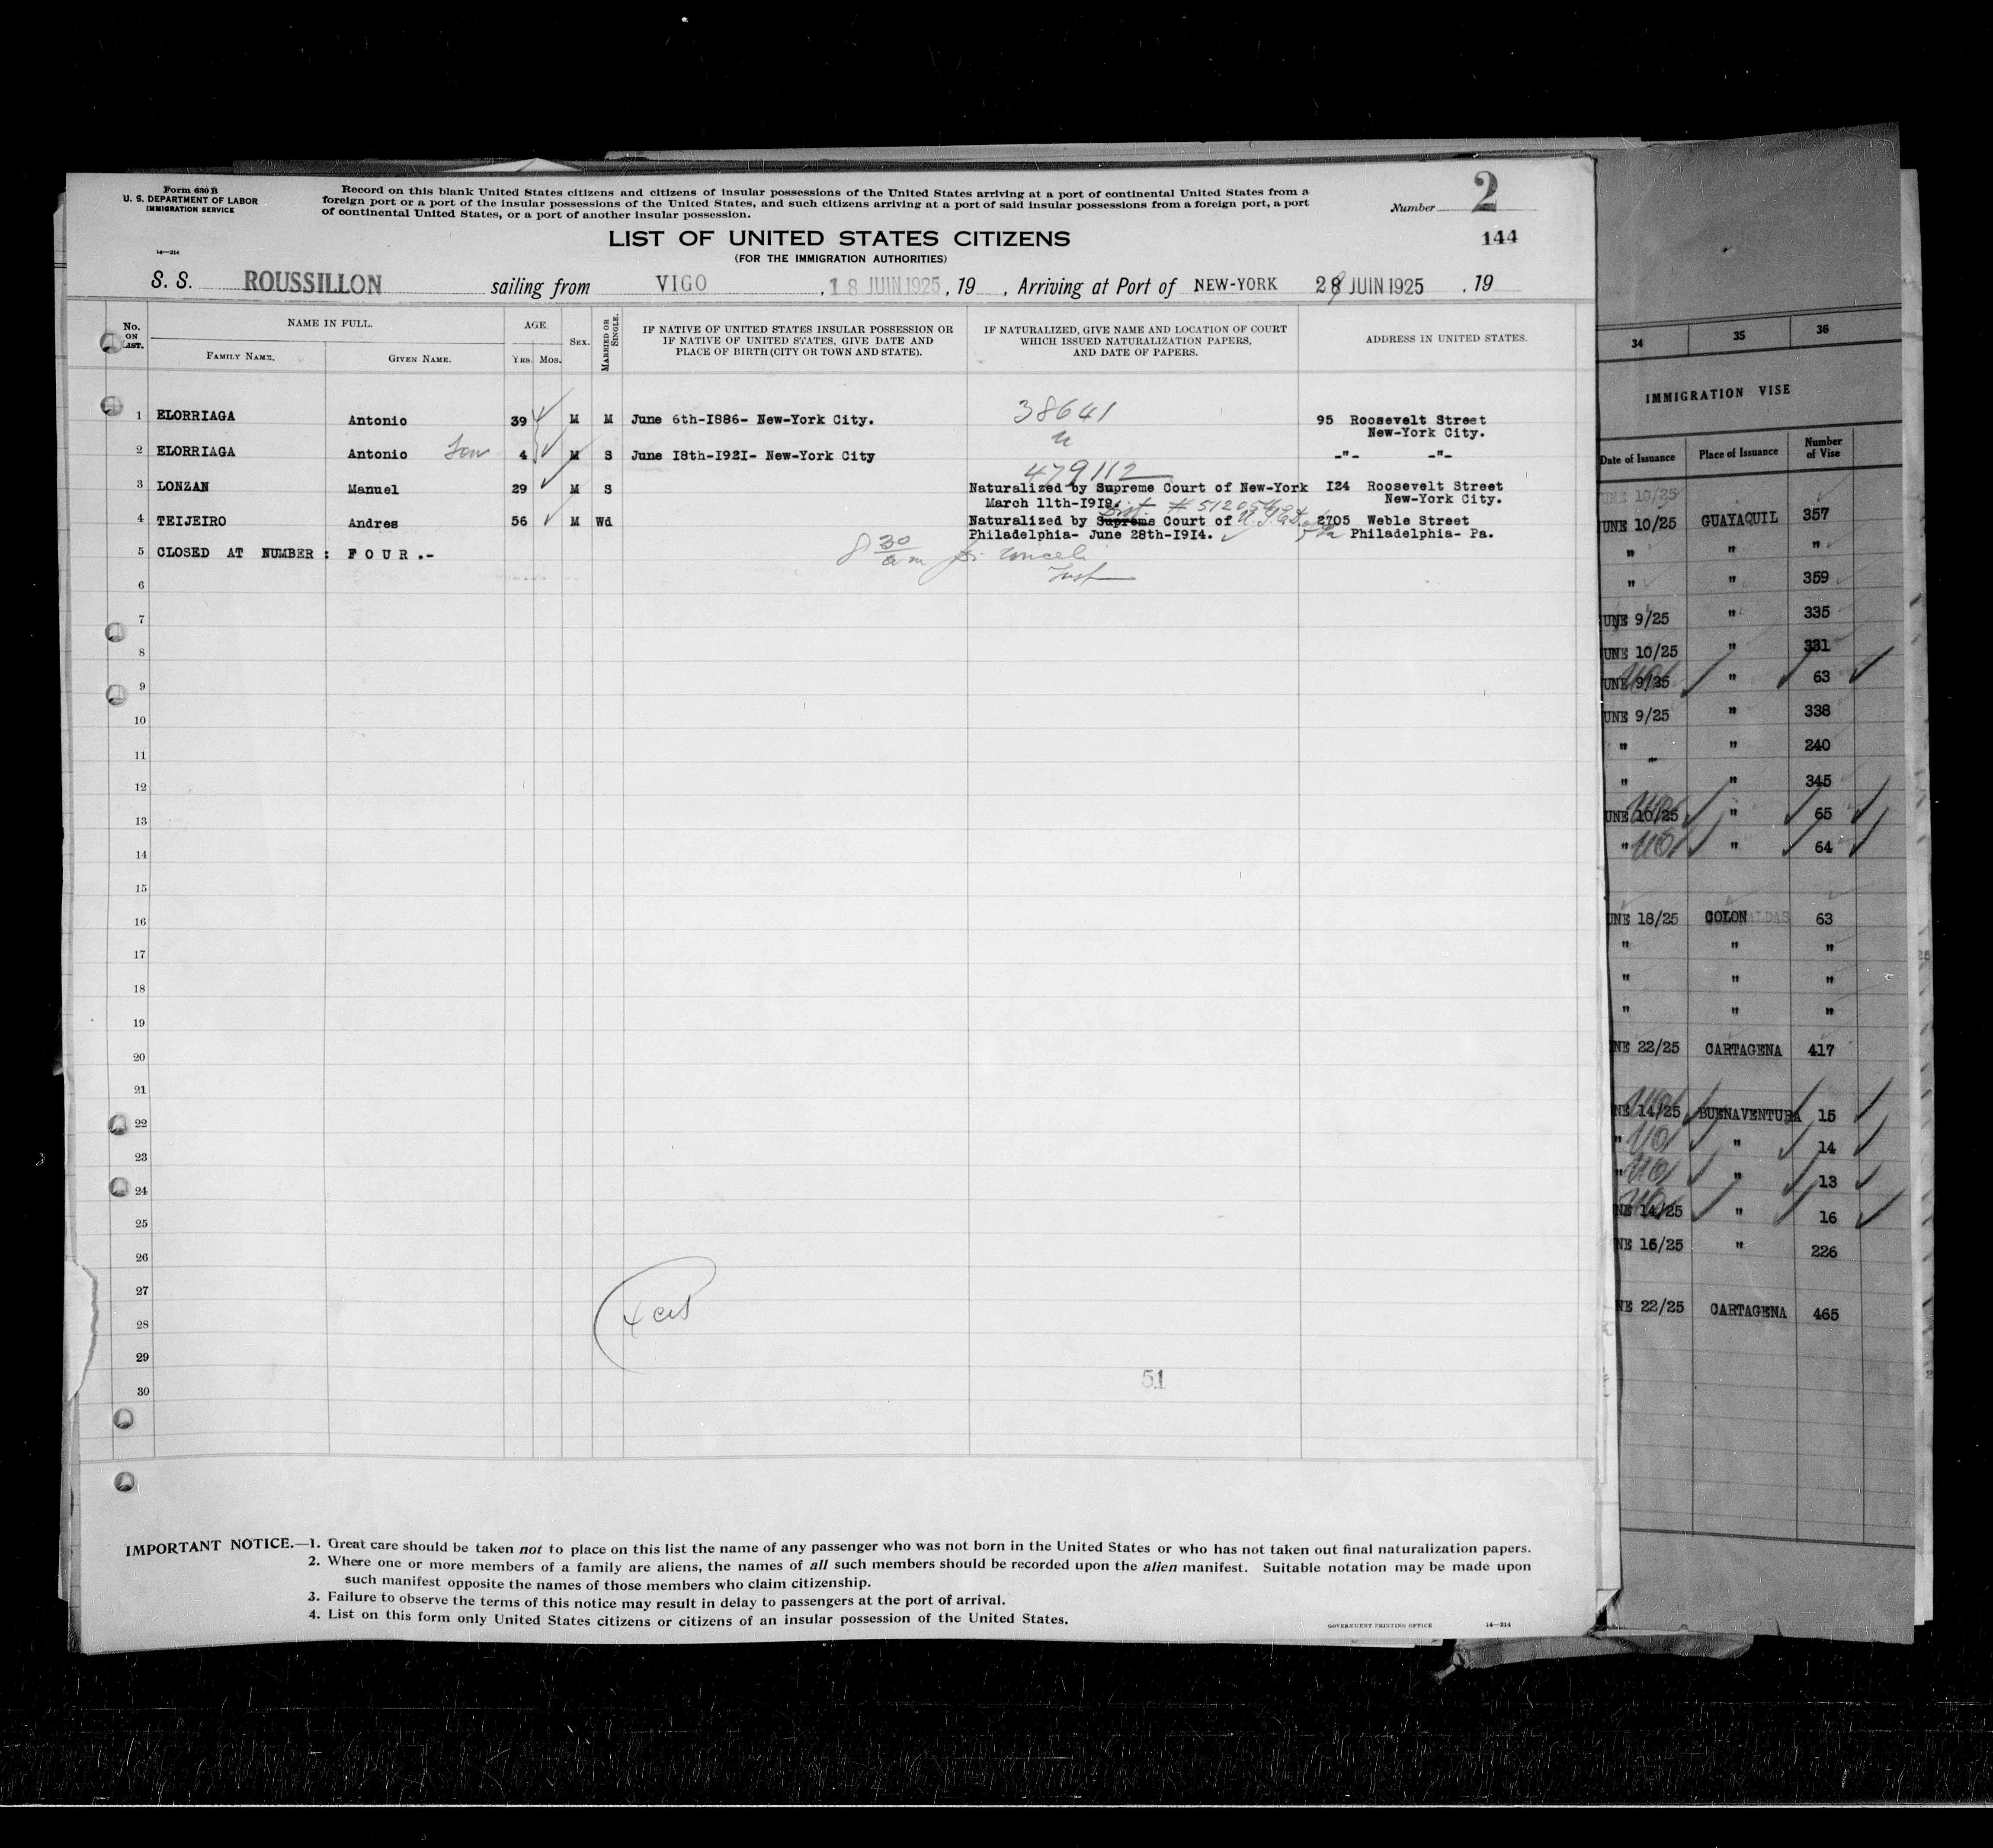 Form 630 B
U. S. DEPARTMENT OF LABOR
IMMIGRATION SERVICE
14—214
Record on this blank United States citizens and citizens of insular possessions of the United States arriving at a port of continental United States from a
foreign port or a port of the insular possessions of the United States, and such citizens arriving at a port of said insular possessions from a foreign port, a port
of continental United States, or a port of another insular possession.
Number 2
144
LIST OF UNITED STATES CITIZENS
(FOR THE IMMIGRATION AUTHORITIES)
S. S. ROUSSILLON sailing from VIGO , 18 JUIN 1925 , 19 , Arriving at Port of NEW-YORK 28 JUIN 1925 , 19
No. ON LIST.
NAME IN FULL.
FAMILY NAME.
GIVEN NAME.
AGE.
YRS. MOS.
SEX.
MARRIED OR SINGLE.
IF NATIVE OF UNITED STATES INSULAR POSSESSION OR
IF NATIVE OF UNITED STATES, GIVE DATE AND
PLACE OF BIRTH (CITY OR TOWN AND STATE).
IF NATURALIZED, GIVE NAME AND LOCATION OF COURT
WHICH ISSUED NATURALIZATION PAPERS,
AND DATE OF PAPERS.
ADDRESS IN UNITED STATES.
1 ELORRIAGA Antonio 39 M M June 6th-I886- New-York City. 38641 95 Roosevelt Street
New-York City.
2 ELORRIAGA Antonio Son 4 M S June I8th-I92I- New-York City " -"- -"-
479112
3 LONZAN Manuel 29 M S Naturalized by Supreme Court of New-York I24 Roosevelt Street
March 11th-I918. New-York City.
Dist. # 512054
4 TEIJEIRO Andres 56 M Wd Naturalized by Supreme Court of 2705 Weble Street
Philadelphia- June 28th-I9I4. Philadelphia- Pa.
5 CLOSED AT NUMBER : F O U R .-
8 30
am
6
7
8
9
10
11
12
13
14
15
16
17
18
19
20
21
22
23
24
25
26
27
28
29
30
51
IMPORTANT NOTICE.—1. Great care should be taken not to place on this list the name of any passenger who was not born in the United States or who has not taken out final naturalization papers.
2. Where one or more members of a family are aliens, the names of all such members should be recorded upon the alien manifest. Suitable notation may be made upon
such manifest opposite the names of those members who claim citizenship.
3. Failure to observe the terms of this notice may result in delay to passengers at the port of arrival.
4. List on this form only United States citizens or citizens of an insular possession of the United States.
GOVERNMENT PRINTING OFFICE 14—214
34 35 36
IMMIGRATION VISE
Date of Issuance Place of Issuance Number of Vise
UNE 10/25
UNE 10/25 GUAYAQUIL 357
" " "
" " 359
UNE 9/25 " 335
UNE 10/25 " 331
UNE 9/25 " 63
UNE 9/25 " 338
" " 240
" " 345
UNE 10/25 " 65
" " 64
UNE 18/25 COLON 63
" " "
" " "
" " "
NE 22/25 CARTAGENA 417
NE 14/25 BUENAVENTURA 15
" " 14
" " 13
NE 14/25 " 16
NE 16/25 " 226
NE 22/25 CARTAGENA 465